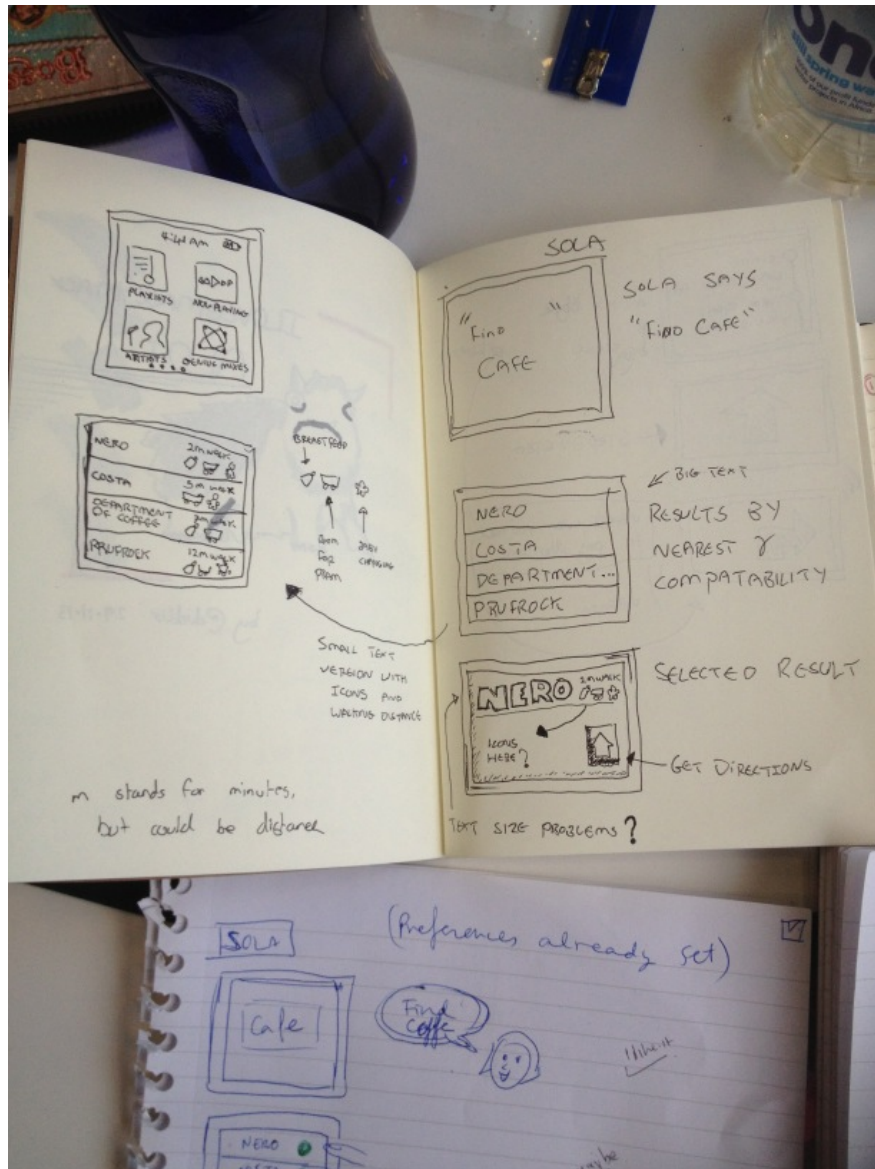 still spring wa
4:41 AM
PLAYLISTS
NOW PLAYING
ARTISTS
GENIUS MIXES
NERO
2m WALK
COSTA
5m WALK
DEPARTMENT
OF COFFEE
7m WALK
PRUFROCK
12m WALK
BREASTFEED
ROOM
FOR
PRAM
BABY
CHANGING
SMALL TEXT
VERSION WITH
ICONS AND
WALKING DISTANCE
m stands for minutes,
but could be distance
SOLA
"FIND
CAFE"
SOLA SAYS
"FIND CAFE"
BIG TEXT
NERO
COSTA
DEPARTMENT...
PRUFROCK
RESULTS BY
NEAREST &
COMPATABILITY
SELECTED RESULT
NERO
2m WALK
ICONS
HERE?
GET DIRECTIONS
TEXT SIZE PROBLEMS?
SOLA
(Preferences already set)
Cafe
Find
Coffe
NERO